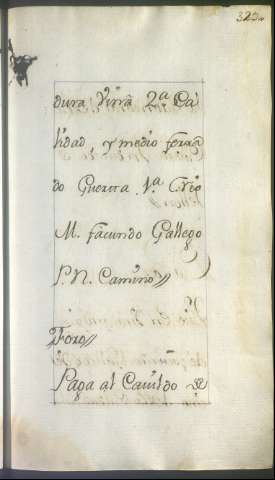 323
dura Viña 2.ª Ca
lidad, y medio ferra
do Guerra 1.ª Trio
M. facundo Gallego
P. N. Camino
Foro
Paga al Cavildo de